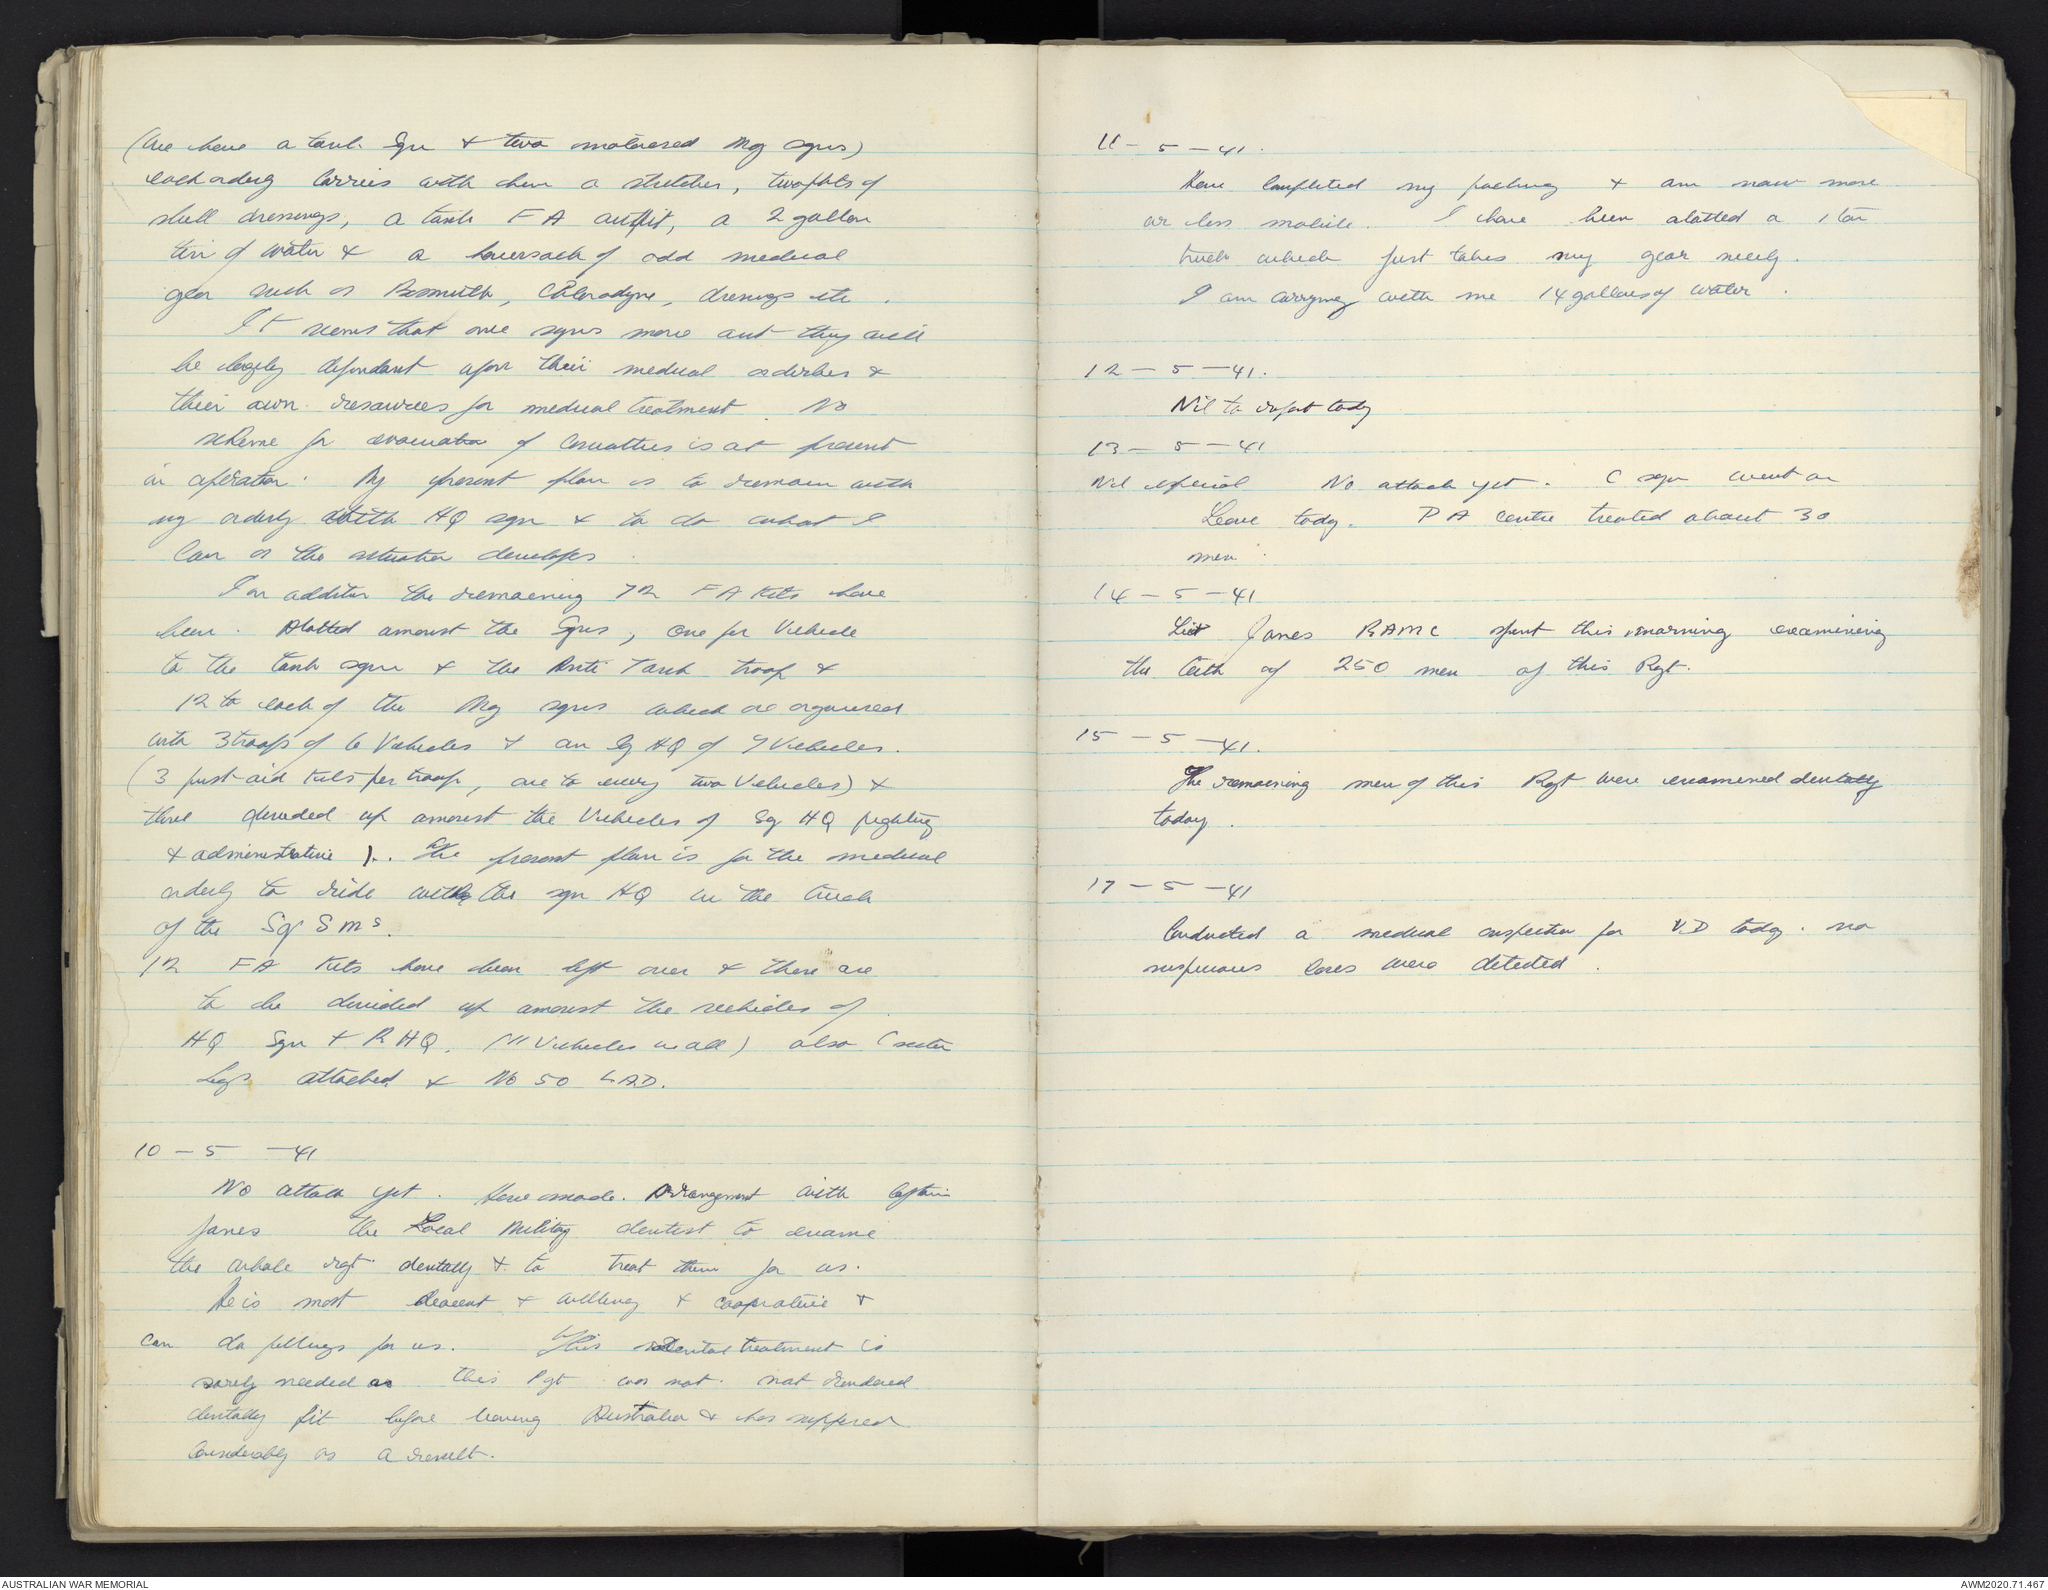 (We have a tank Sqn & two motorised Mg sqns)
each orderly carries with him a stretcher, two pkts of
shell dressings, a tank FA outfit, a 2 gallon
tin of water & a haversack of odd medical
gear such as Bismuth, Chlorodyne, dressings etc.
It seems that once sqns move out they will
be largely dependant upon their medical orderlies &
their own resources for medical treatment. No
scheme for evacuation of casualties is at present
in operation. My present plan is to remain with
my orderly with HQ sqn & to do what I
can as the situation develops.
In addition the remaining 72 FA kits have
been. Alotted amonst the Sqns, one per Vehicle
to the tank sqn & the Anti Tank troop &
12 to each of the Mg sqns which are organised
with 3 troops of 6 Vehicles & an Sq HQ of 9 Vehicles.
(3 first aid kits per troop, one to every two Vehicles) &
three divided up amonst the Vehicles of Sq HQ fighting
& administrative). The present plan is for the medical
orderly to ride with the sqn HQ in the truck
of the Sq S Ms.
12 FA kits have been left over & these are
to be divided up amonst the vehicles of
HQ Sqn & R HQ. (11 Vehicles in all) also C section
Sigs attached & No 50 LAD.
10 - 5 - 41
No attack yet. Have made. Arrangement with Captain
Jones the Local Military dentist to examine
the whole rgt. dentally & to treat them for us.
He is most deacent & willing & cooprative &
can do fillings for us. This dental treatment is
sorely needed as this Rgt was not. not rendered
dentally fit before leaving Australia & has suffered
considerably as a result.
11 - 5 - 41.
Have completed my packing & am now more
or less mobile. I have been alotted a 1 ton
truck which just takes my gear nicely.
I am carrying with me 14 gallons of water.
12 - 5 - 41.
Nil to report today
13 - 5 - 41
Nil special No attack yet. C sqn went on
Leave today. P A centre treated about 30
men.
14 - 5 - 41
Jones RAMC spent this morning examining
the teeth of 250 men of this Rgt.
15 - 5 - 41.
The remaining men of this Rgt were examined dentally
today.
17 - 5 - 41
Conducted a medical inspection for V.D today. no
suspicious cases were detected.
AUSTRALIAN WAR MEMORIAL
AWM2020.71.467